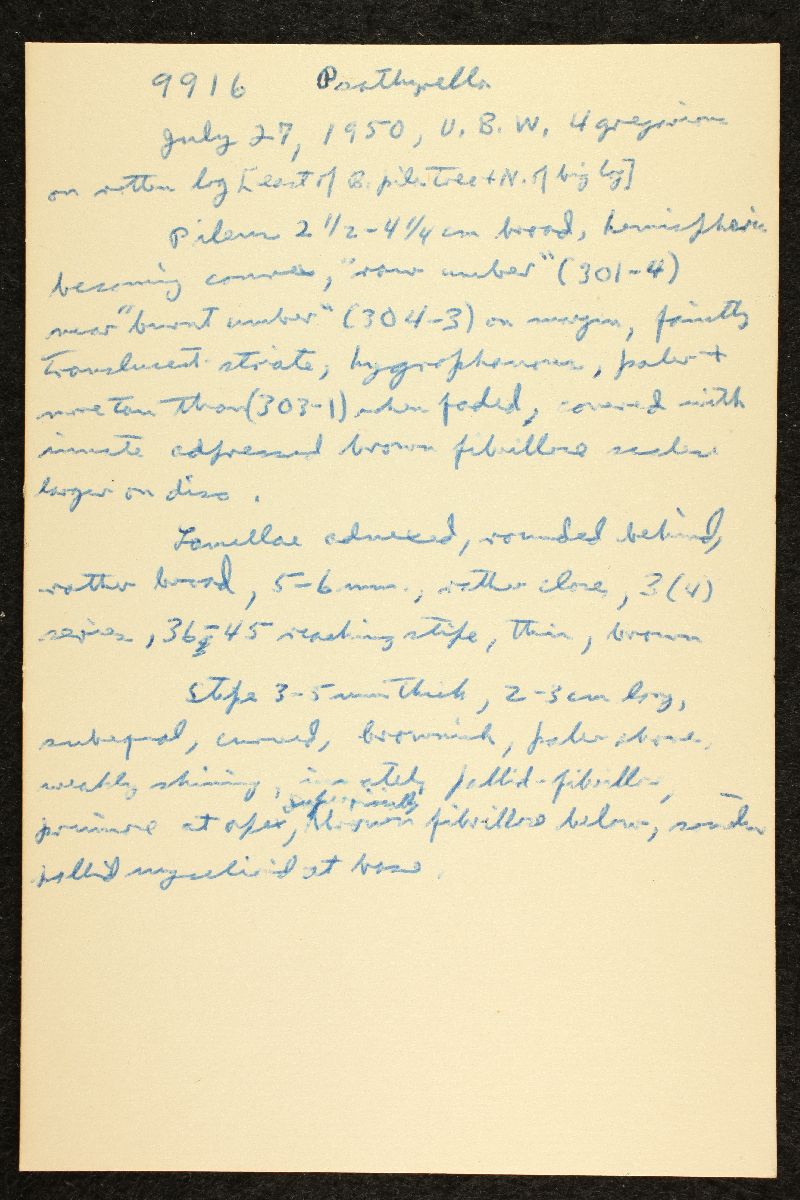 9916 Psathyrella
July 27, 1950, U. B. W. 4 gregarious
on rotten log [east of B. pile tree + N. of big log]
Pileus 2 1/2-4 1/4 cm broad, hemispheric
becoming convex, "raw umber" (301-4)
near "burnt umber" (304-3) on margin, faintly
translucent striate, hygrophanous, paler +
more tan than (303-1) when faded, covered with
innate adpressed brown fibrillose scales
larger on disc.
Lamellae adnexed, rounded behind,
rather broad, 5-6 mm., rather close, 3(4)
series, 36-45 reaching stipe, thin, brown
Stipe 3-5 mm thick, 2-3 cm long,
subequal, curved, brownish, paler above,
weakly shining, innately pallid-fibrillose,
superficially
pruinose at apex, brown fibrillose below,
pallid mycelioid at base.